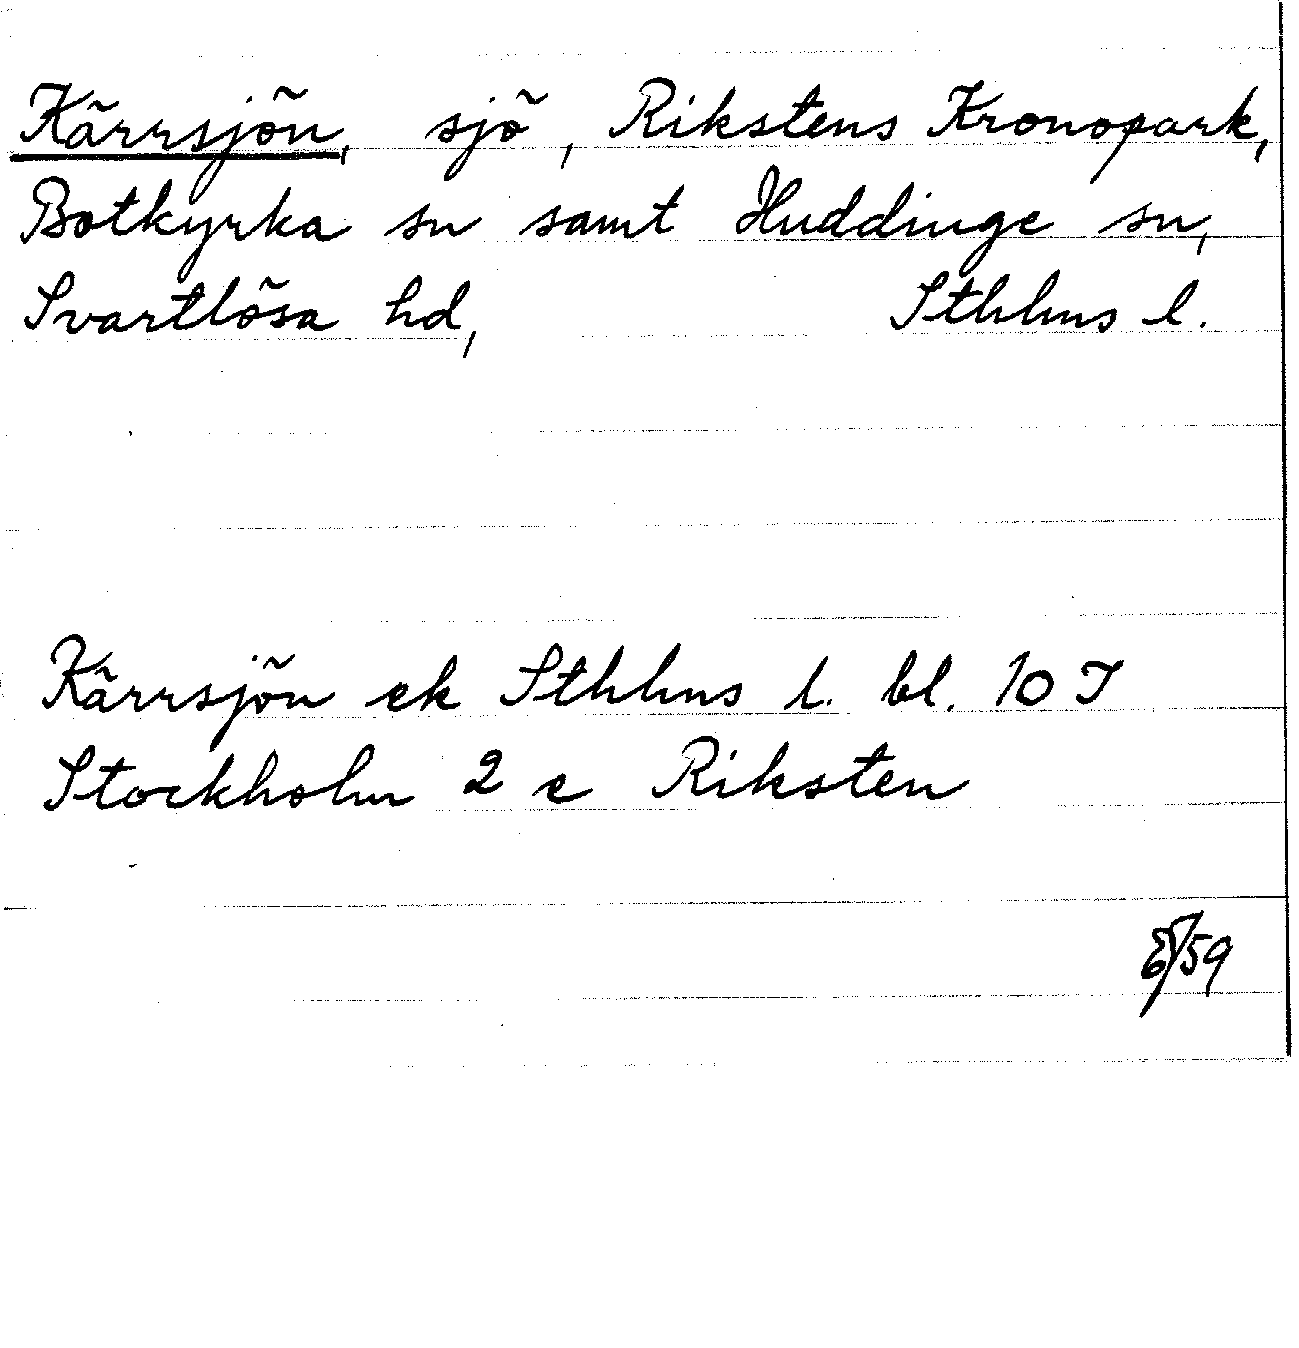 Kärrsjön, sjö, Rikstens Kronopark,
Botkyrka sn samt Huddinge sn,
Svartlösa hd, Sthlms l.
Kärrsjön ek Sthlms l. bl. 10 I
Stockholm 2 c Riksten
/59